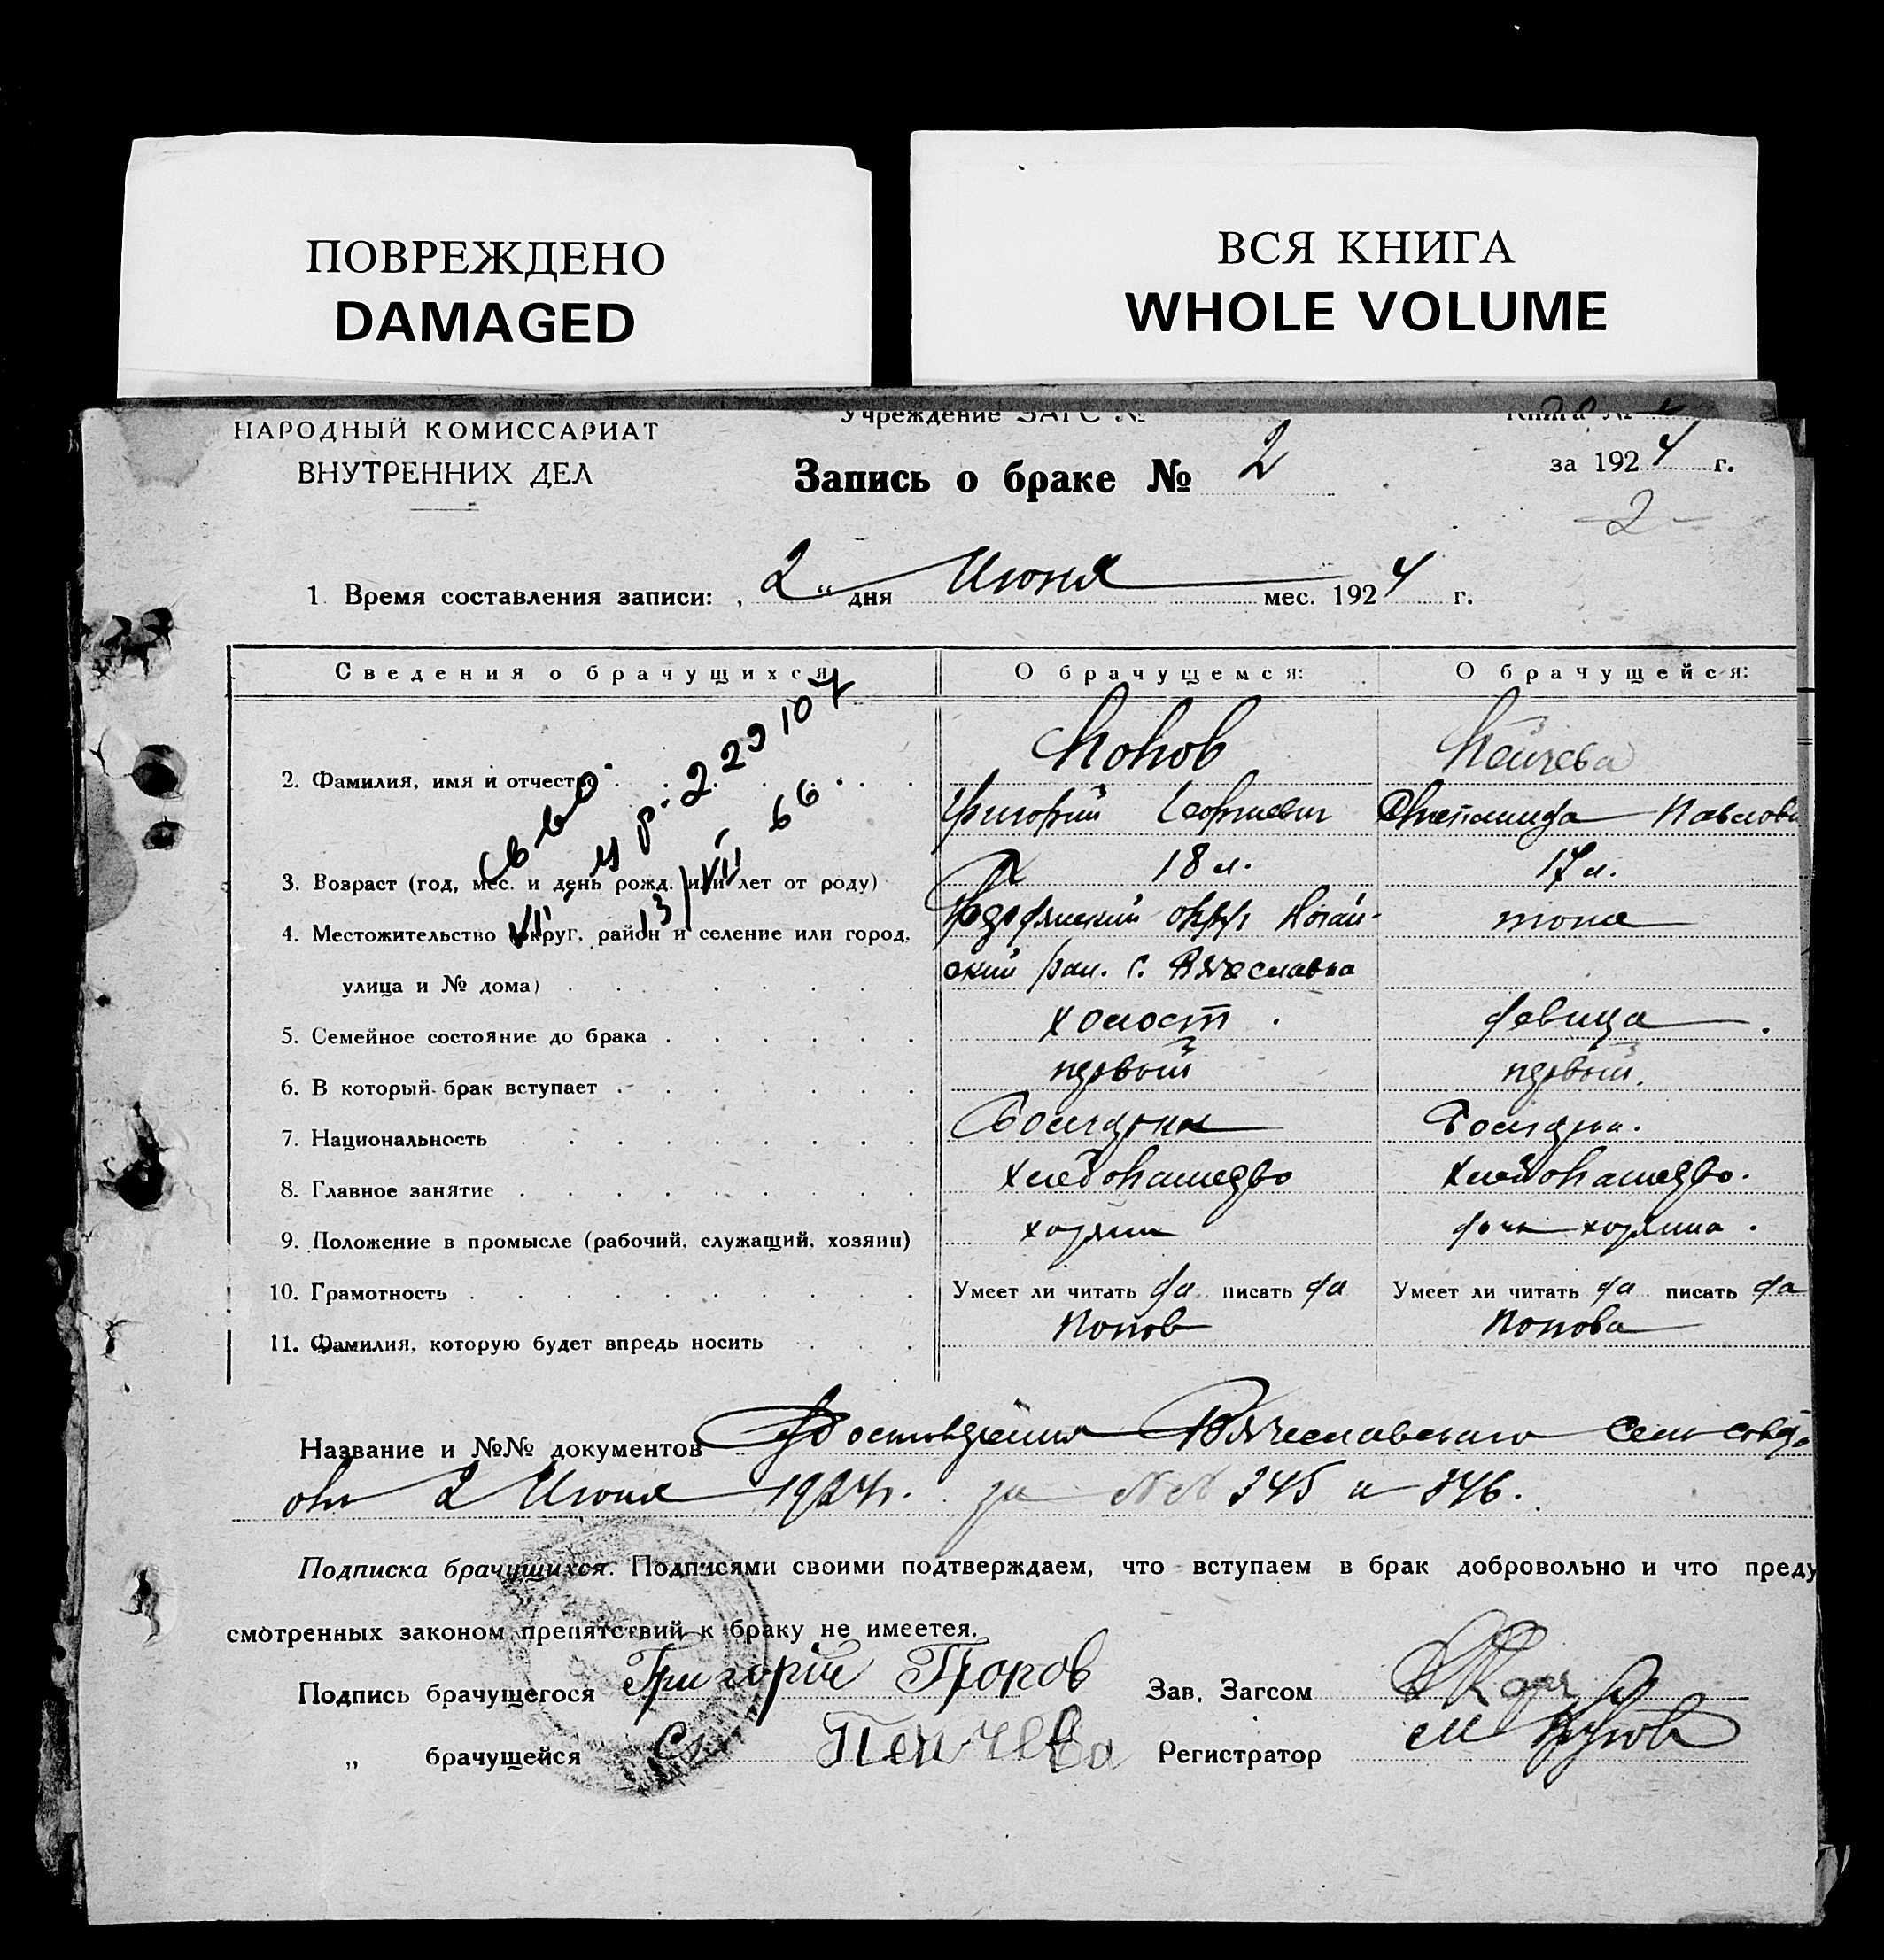 ПОВРЕЖДЕНО
DAMAGED
ВСЯ КНИГА
WHOLE VOLUME
Учреждение ЗАГС №
Книга №
НАРОДНЫЙ КОМИССАРИАТ
ВНУТРЕННИХ ДЕЛ
Запись о браке № 2
за 1924 г.
- 2 -
1. Время составления записи: „ 2 “ дня Июня мес. 1924 г.
Сведения о брачущихся О брачущемся: О брачущейся:
Попов Пейчева
2. Фамилия, имя и отчество
Григорий Георгиевич Павловн
3. Возраст (год, мес. и день рожд. или лет от роду) 18 л. 17 л.
4. Местожительство (округ, район и селение или город, округ Ногай- тоже
улица и № дома) ский рай. с. Вячеславка
5. Семейное состояние до брака холост. девица.
6. В который брак вступает первый первый.
7. Национальность Болгарин Болгарка.
8. Главное занятие хлебопашество хлебопашество.
9. Положение в промысле (рабочий, служащий, хозяин) хозяин дочь хозяина.
10. Грамотность Умеет ли читать да писать да Умеет ли читать да писать да
11. Фамилия, которую будет впредь носить Попов Попова
VII 13/VII 66.
Название и №№ документов Удостоверения Вячеславского сельсовета
от 2 Июня 1924 г. за №№ 345 и 346.
Подписка брачущихся. Подписями своими подтверждаем, что вступаем в брак добровольно и что преду
смотренных законом препятствий к браку не имеется.
Подпись брачущегося Григорій Попов Зав. Загсом
„ брачущейся Пейчева Регистратор